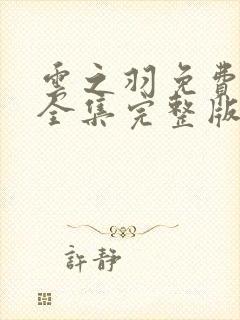 雲之羽免費
全集完整版
許靜